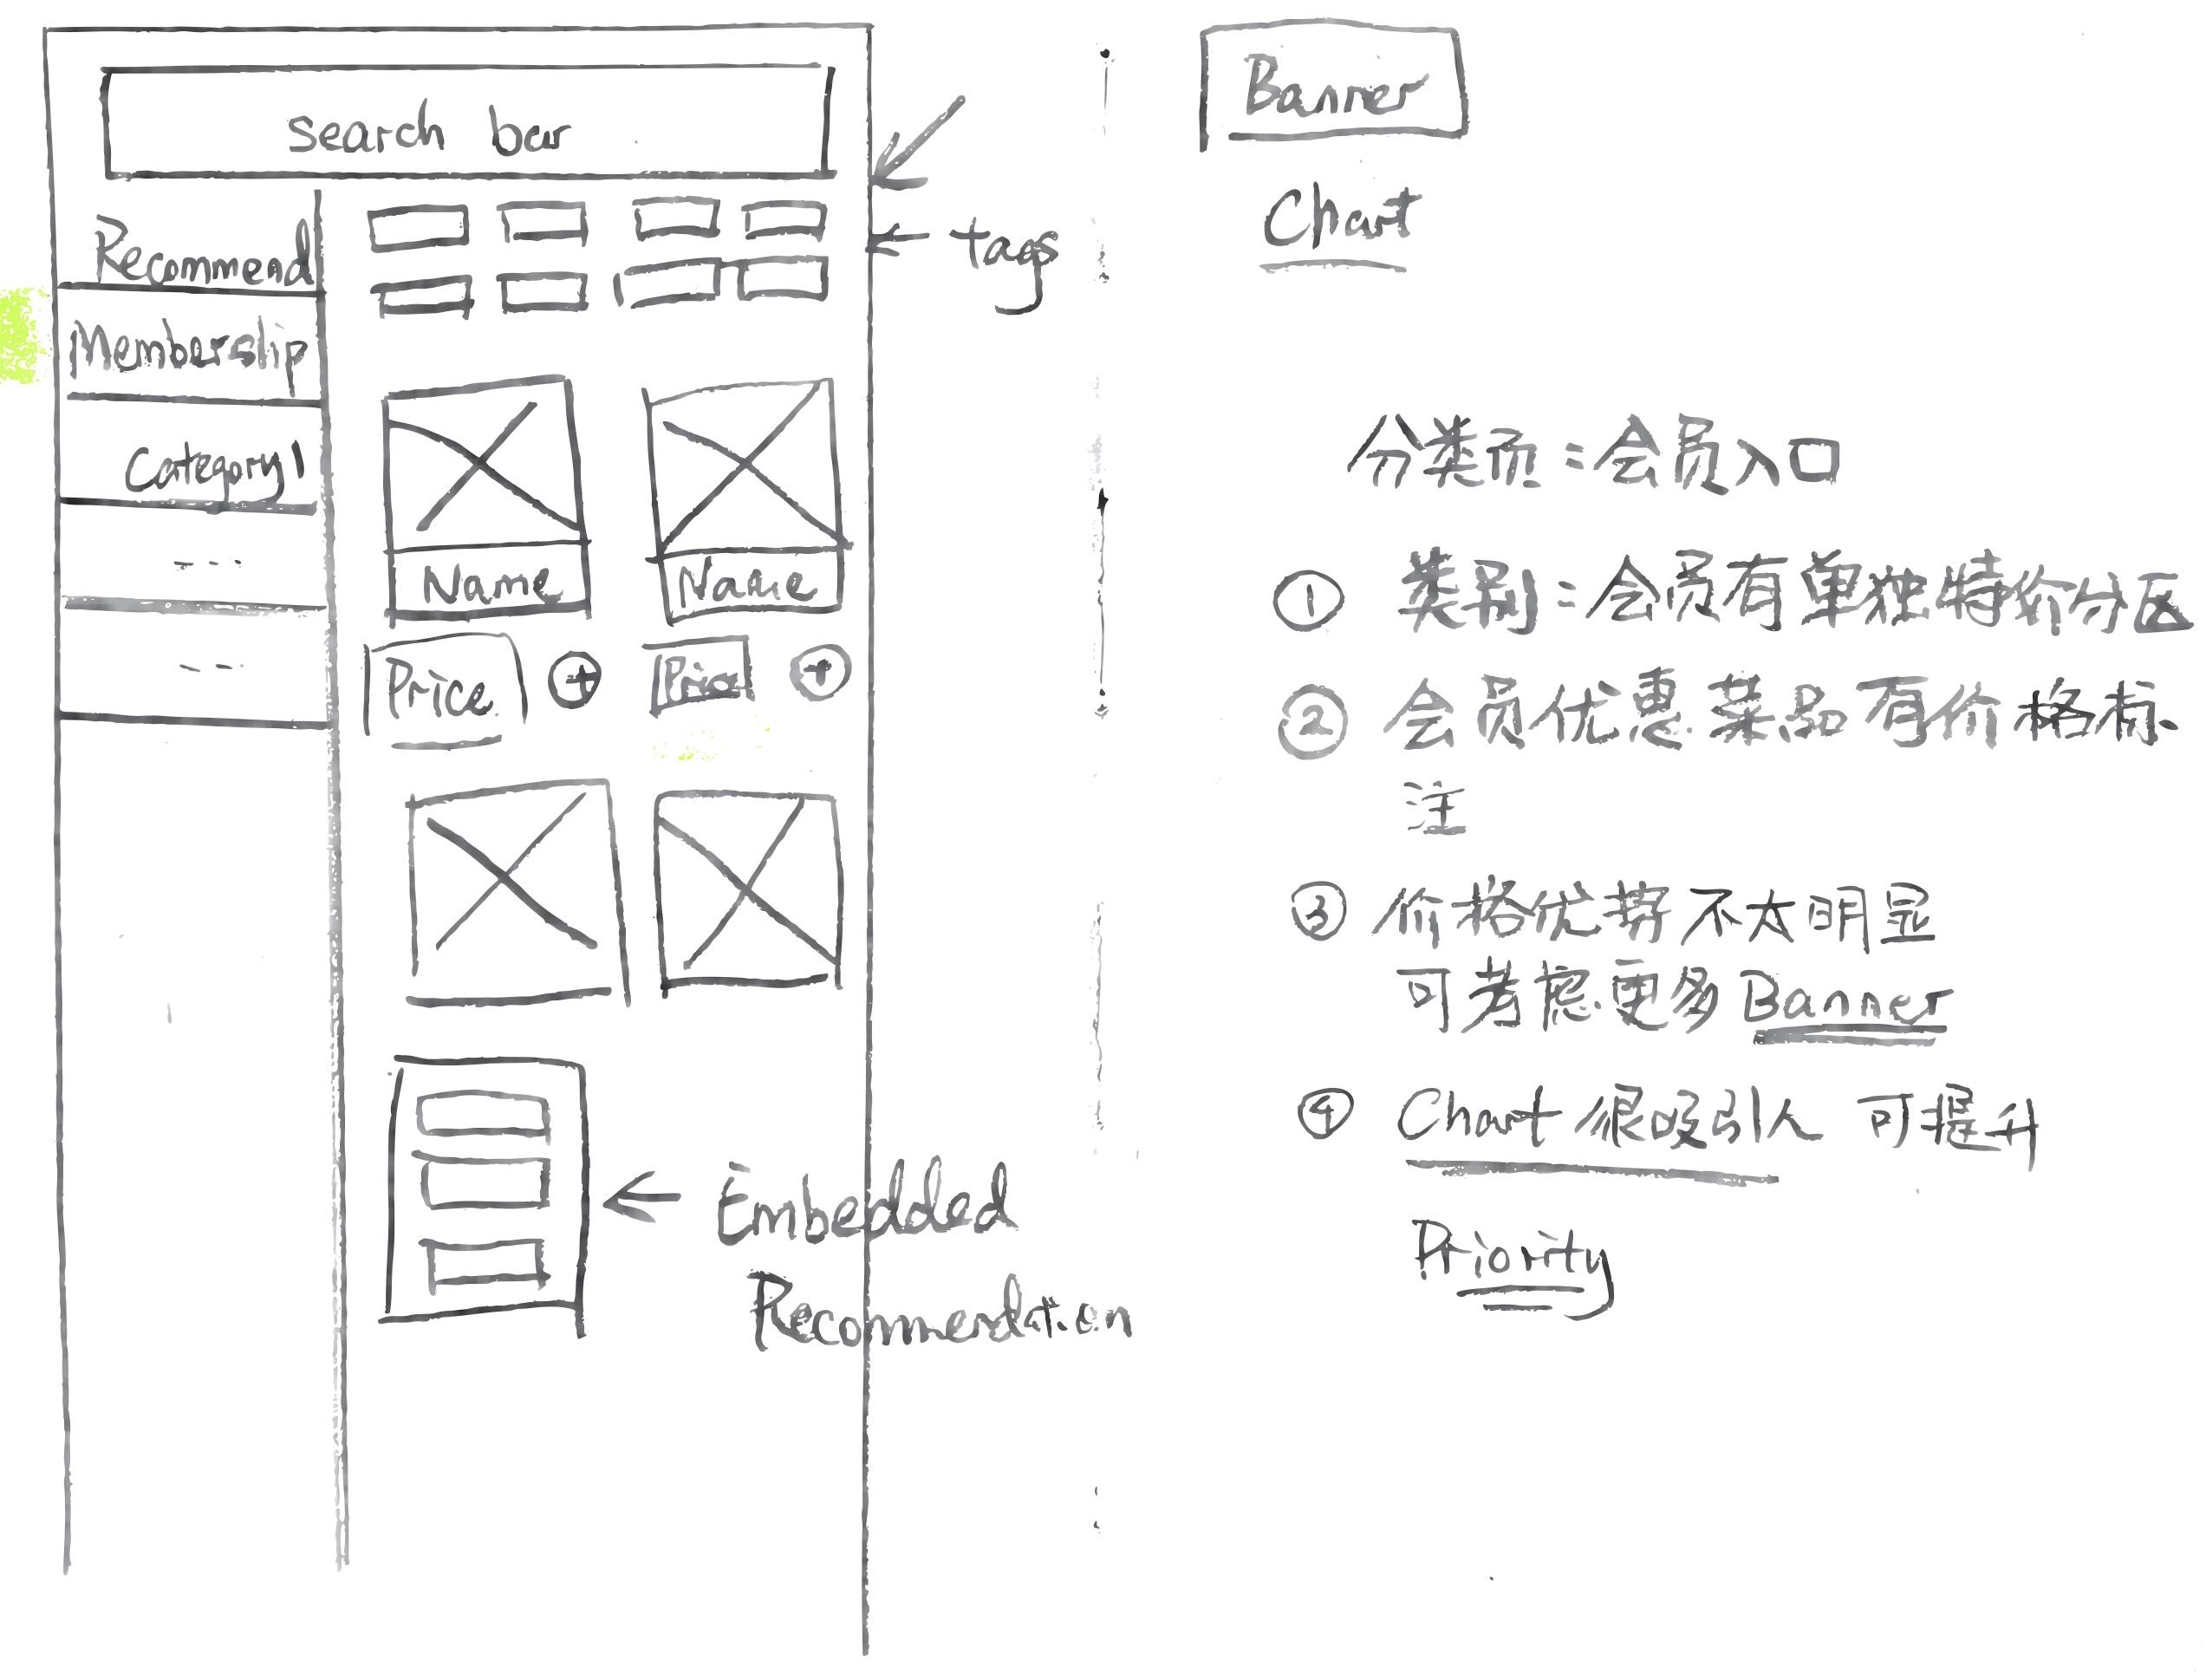 search bar
Recommend
Membership
Category1
...
...
tags
Name
Name
Price
Price
Embedded
Recommendation
Banner
Chart
分类页:会员入口
① 类别:会员有单独特价分区
② 会员优惠菜品有价格标
注
③ 价格优势不太明显
可考虑更多Banner
④ Chart 很吸引人 可提升
Priority